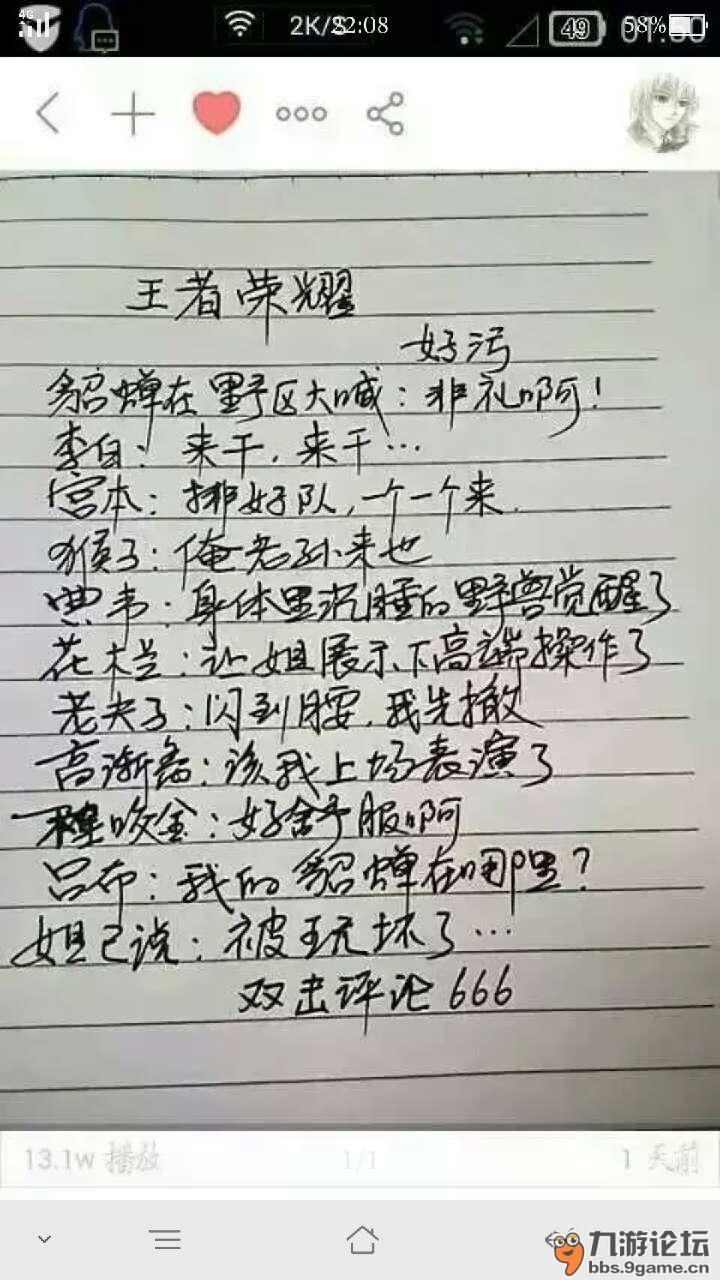 4G
2K/S
22:08
49
58%
王者荣耀
好污
貂蝉在野区大喊：非礼啊！
李白：来干，来干…
宫本：排好队，一个一个来.
猴子：俺老孙来也
典韦：身体里沉睡的野兽觉醒了
花木兰：让姐展示下高端操作了
老夫子：闪到腰，我先撤
高渐离：该我上场表演了
程咬金：好舒服啊
吕布：我的貂蝉在哪里？
妲己说：被玩坏了…
双击评论666
13.1w 播放
1/1
1 天前
九游论坛
bbs.9game.cn